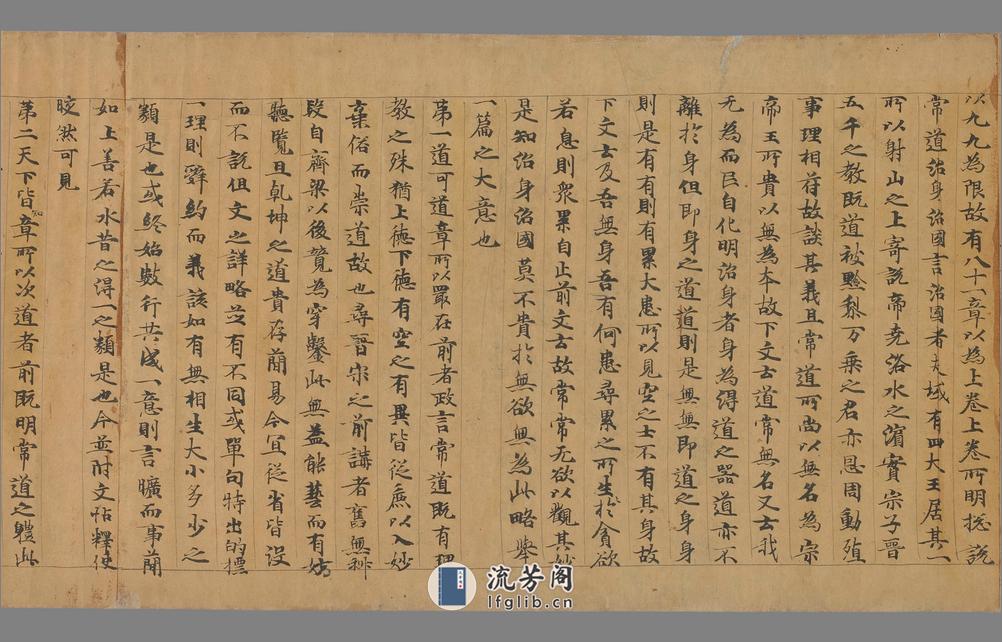 以九九為限故有八十一章以為上卷上卷所明揔說
常道治身治國言治國者夫域有四大王居其一
所以射山之上寄說帝堯洛水之濱實宗子晋
五千之教既道被黔梨万乘之君亦恩周動殖
事理相苻故談其義且常道所尚以無名為宗
帝王所貴以無為為本故下文云道常無名又云我
无為而民自化明治身者身為得道之器道亦不
離於身但即身之道道則是無無即道之身身
則是有有則有累大患所以見空之士不有其身故
下文云及吾無身吾有何患尋累之所生生於貪欲
若息則衆累自止前文云故常常无欲以觀其妙
是知治身治國莫不貴於無欲無為此略舉
一篇之大意也
第一道可道章所以最在前者政言常道既有理
教之殊猶上徳下徳有空之有異皆從麁以入妙
棄俗而崇道故也尋晉宋之前講者舊無科
段自齊梁以後競為穿鑿此無益能藝而有妨
聽覽且乾坤之道貴存蕳易今冝從省皆沒
而不說但文之詳略并有不同或單句特出的摽
一理則辭約而義該如有無相生大小多少之
類是也或終始數行共成一意則言曠而事蕳
如上善若水昔之得一之類是也今並附文帖釋使
晈然可見
第二天下皆知章所以次道者前既明常道之軆此
流芳阁
lfglib.cn